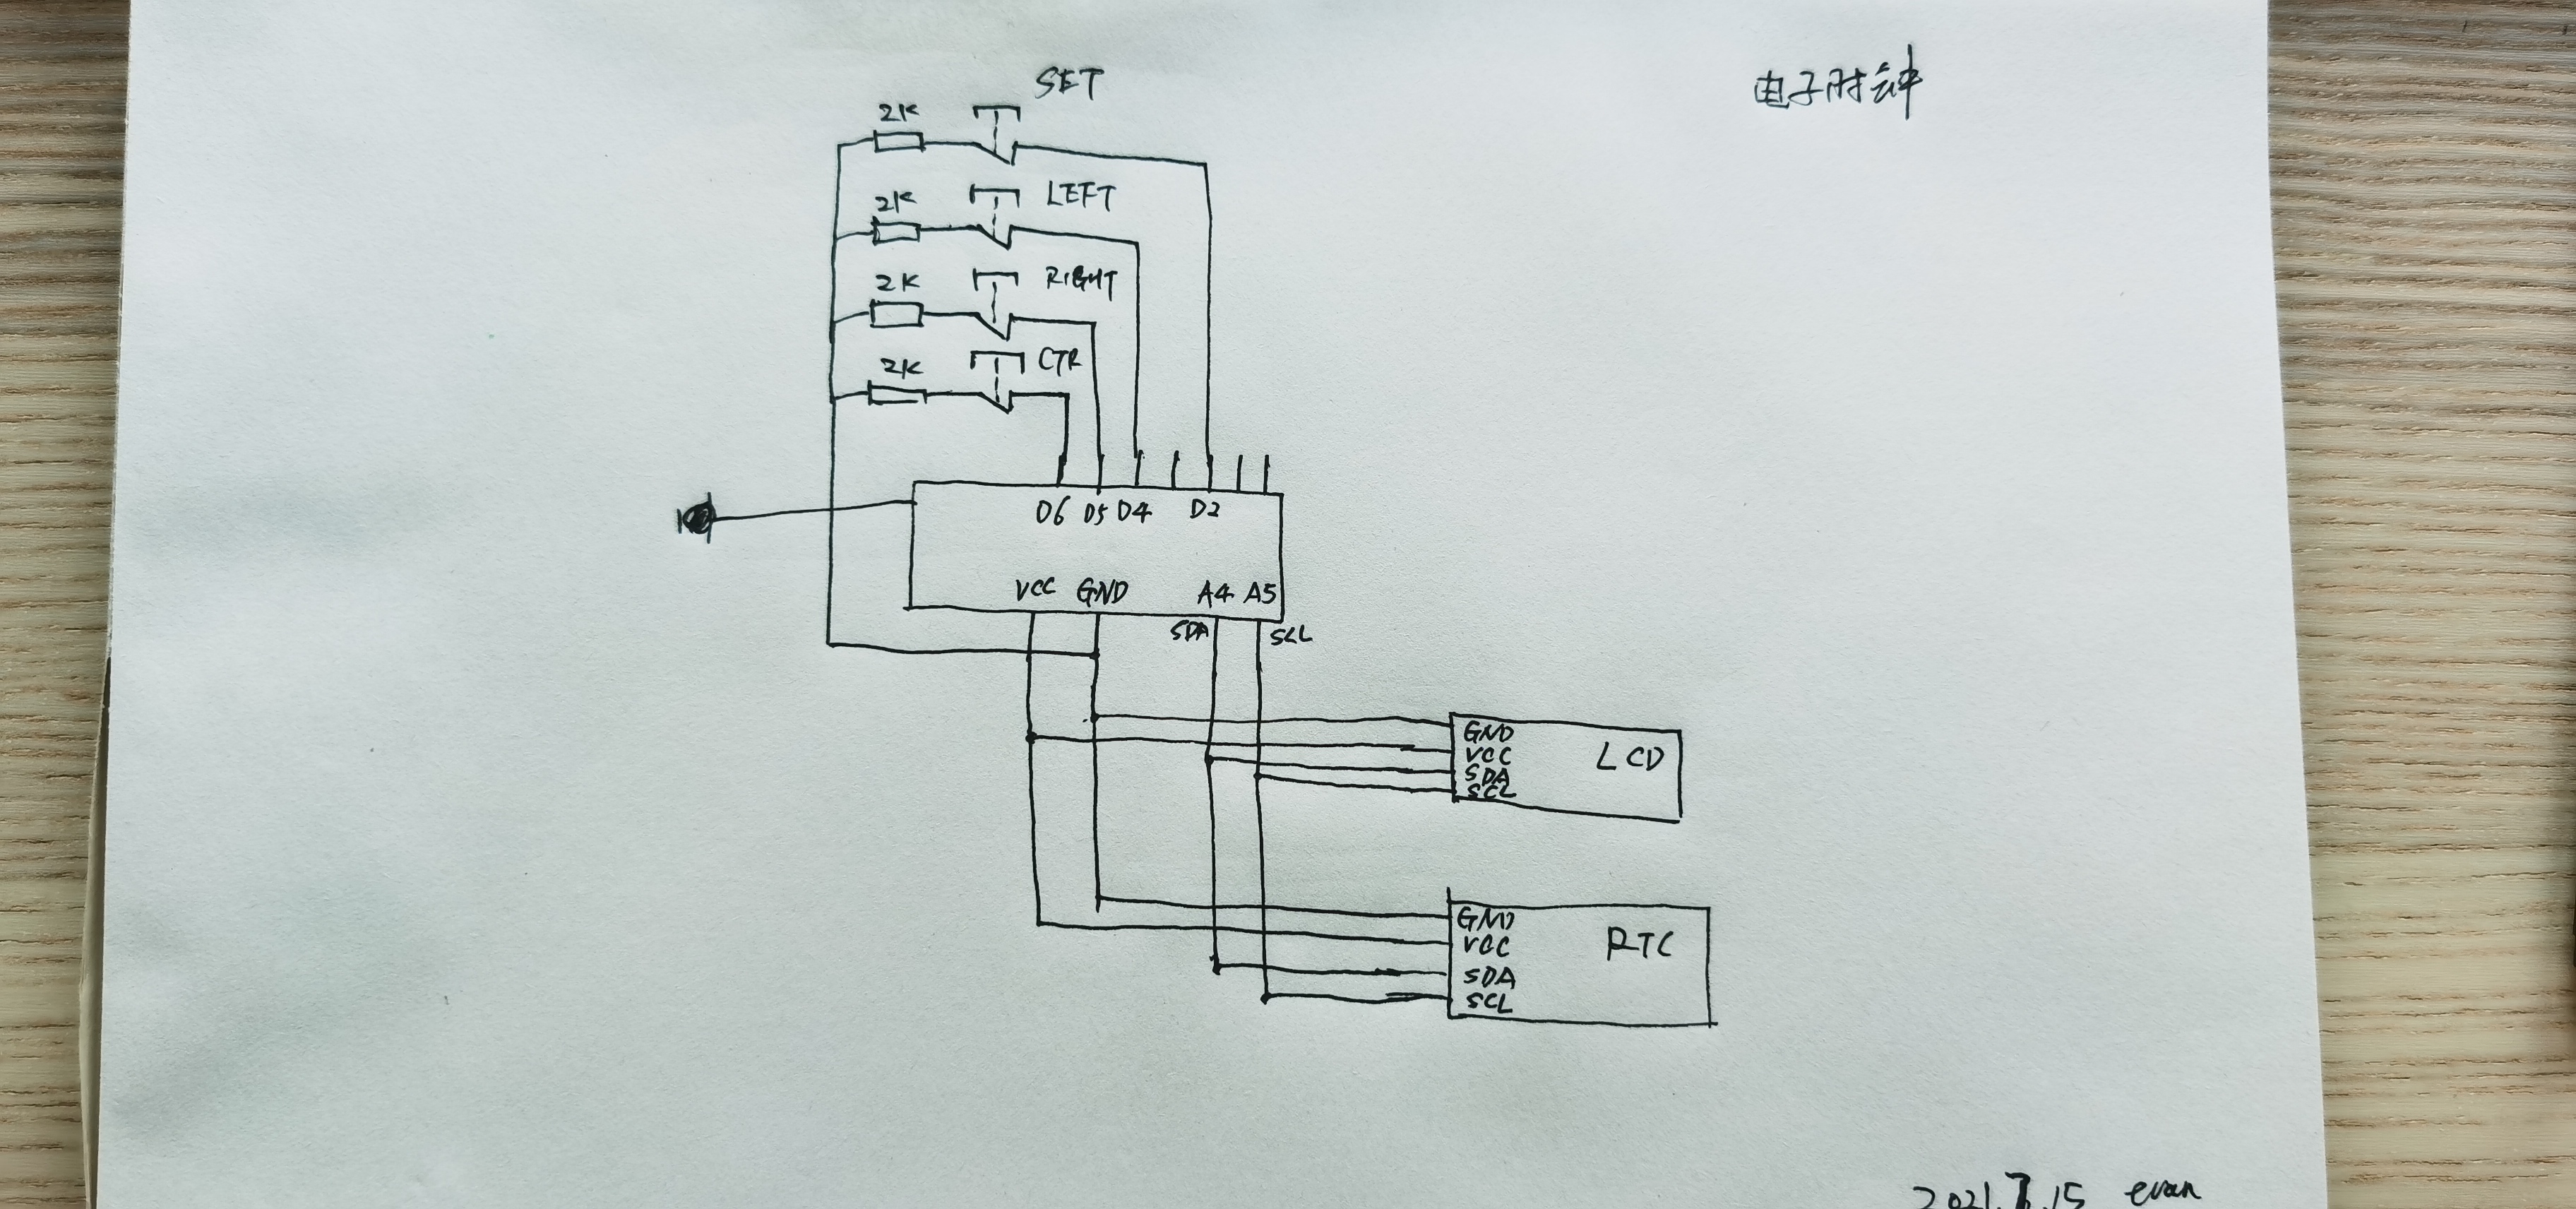 SET
电子时钟
2K
2K
LEFT
2K
RIGHT
2K
CTR
D6 D5 D4 D2
VCC GND A4 A5
SDA SCL
GND
VCC
SDA
SCL
LCD
GND
VCC
SDA
SCL
RTC
2021.7.15 evan